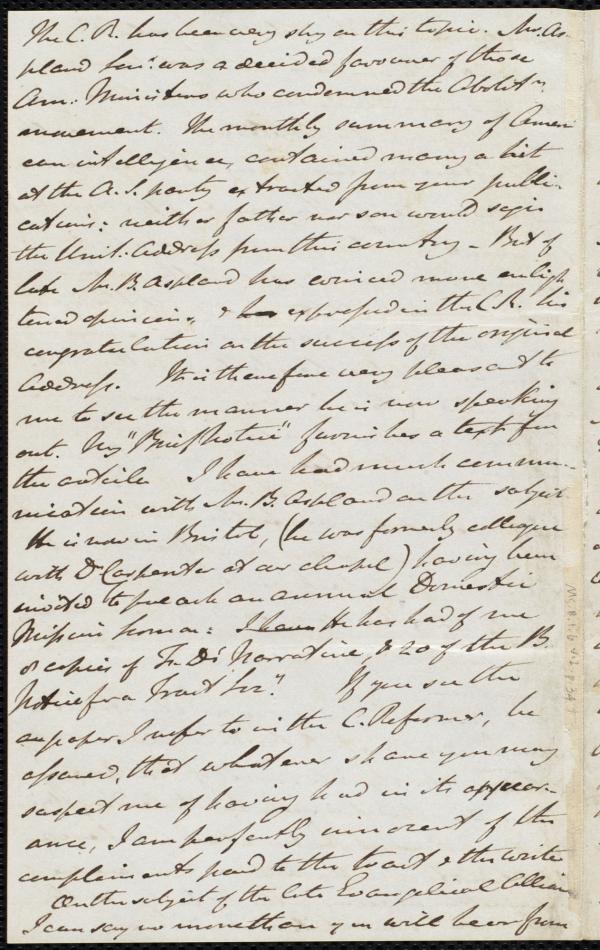 The C. R. has been very shy on this topic. Mr. As-
pland Senr. was a decided favourer of those
Am: Ministers who condemned the Abolitn.
movement. The monthly summary of Ameri
can intelligence, contained many a hit
at the A. S. party extracted from your publi-
cations: neither father nor son would sign
the Unit: Address from this country - But of
late Mr. B. Aspland has evinced more enligh
tened opinions, & expressed in the C. R. his
congratulation on the success of the original
Address. It is therefore very pleasant to
me to see the manner he is now speaking
out. My "Brief Notice" furnishes a text for
the article I have had much commu-
nication with Mr. B. Aspland on the subject
He is now in Bristol, (he was formerly collegue
with Dr. Carpenter at our chapel) having been
invited to preach an annual Domestic
Mission Sermon: He has had of me
8 copies of Fr. Ds' Narrative, & 20 of the B.
Notice for a Tract Socy. If you see the
paper I refer to in the C. Reformer, be
assured, that whatever share you may
suspect me of having had in its appear-
ance, I am perfectly innocent of the
compliments paid to the tract & the writer
On the subject of the late Evangelical Allian
I can say no more than you will hear from